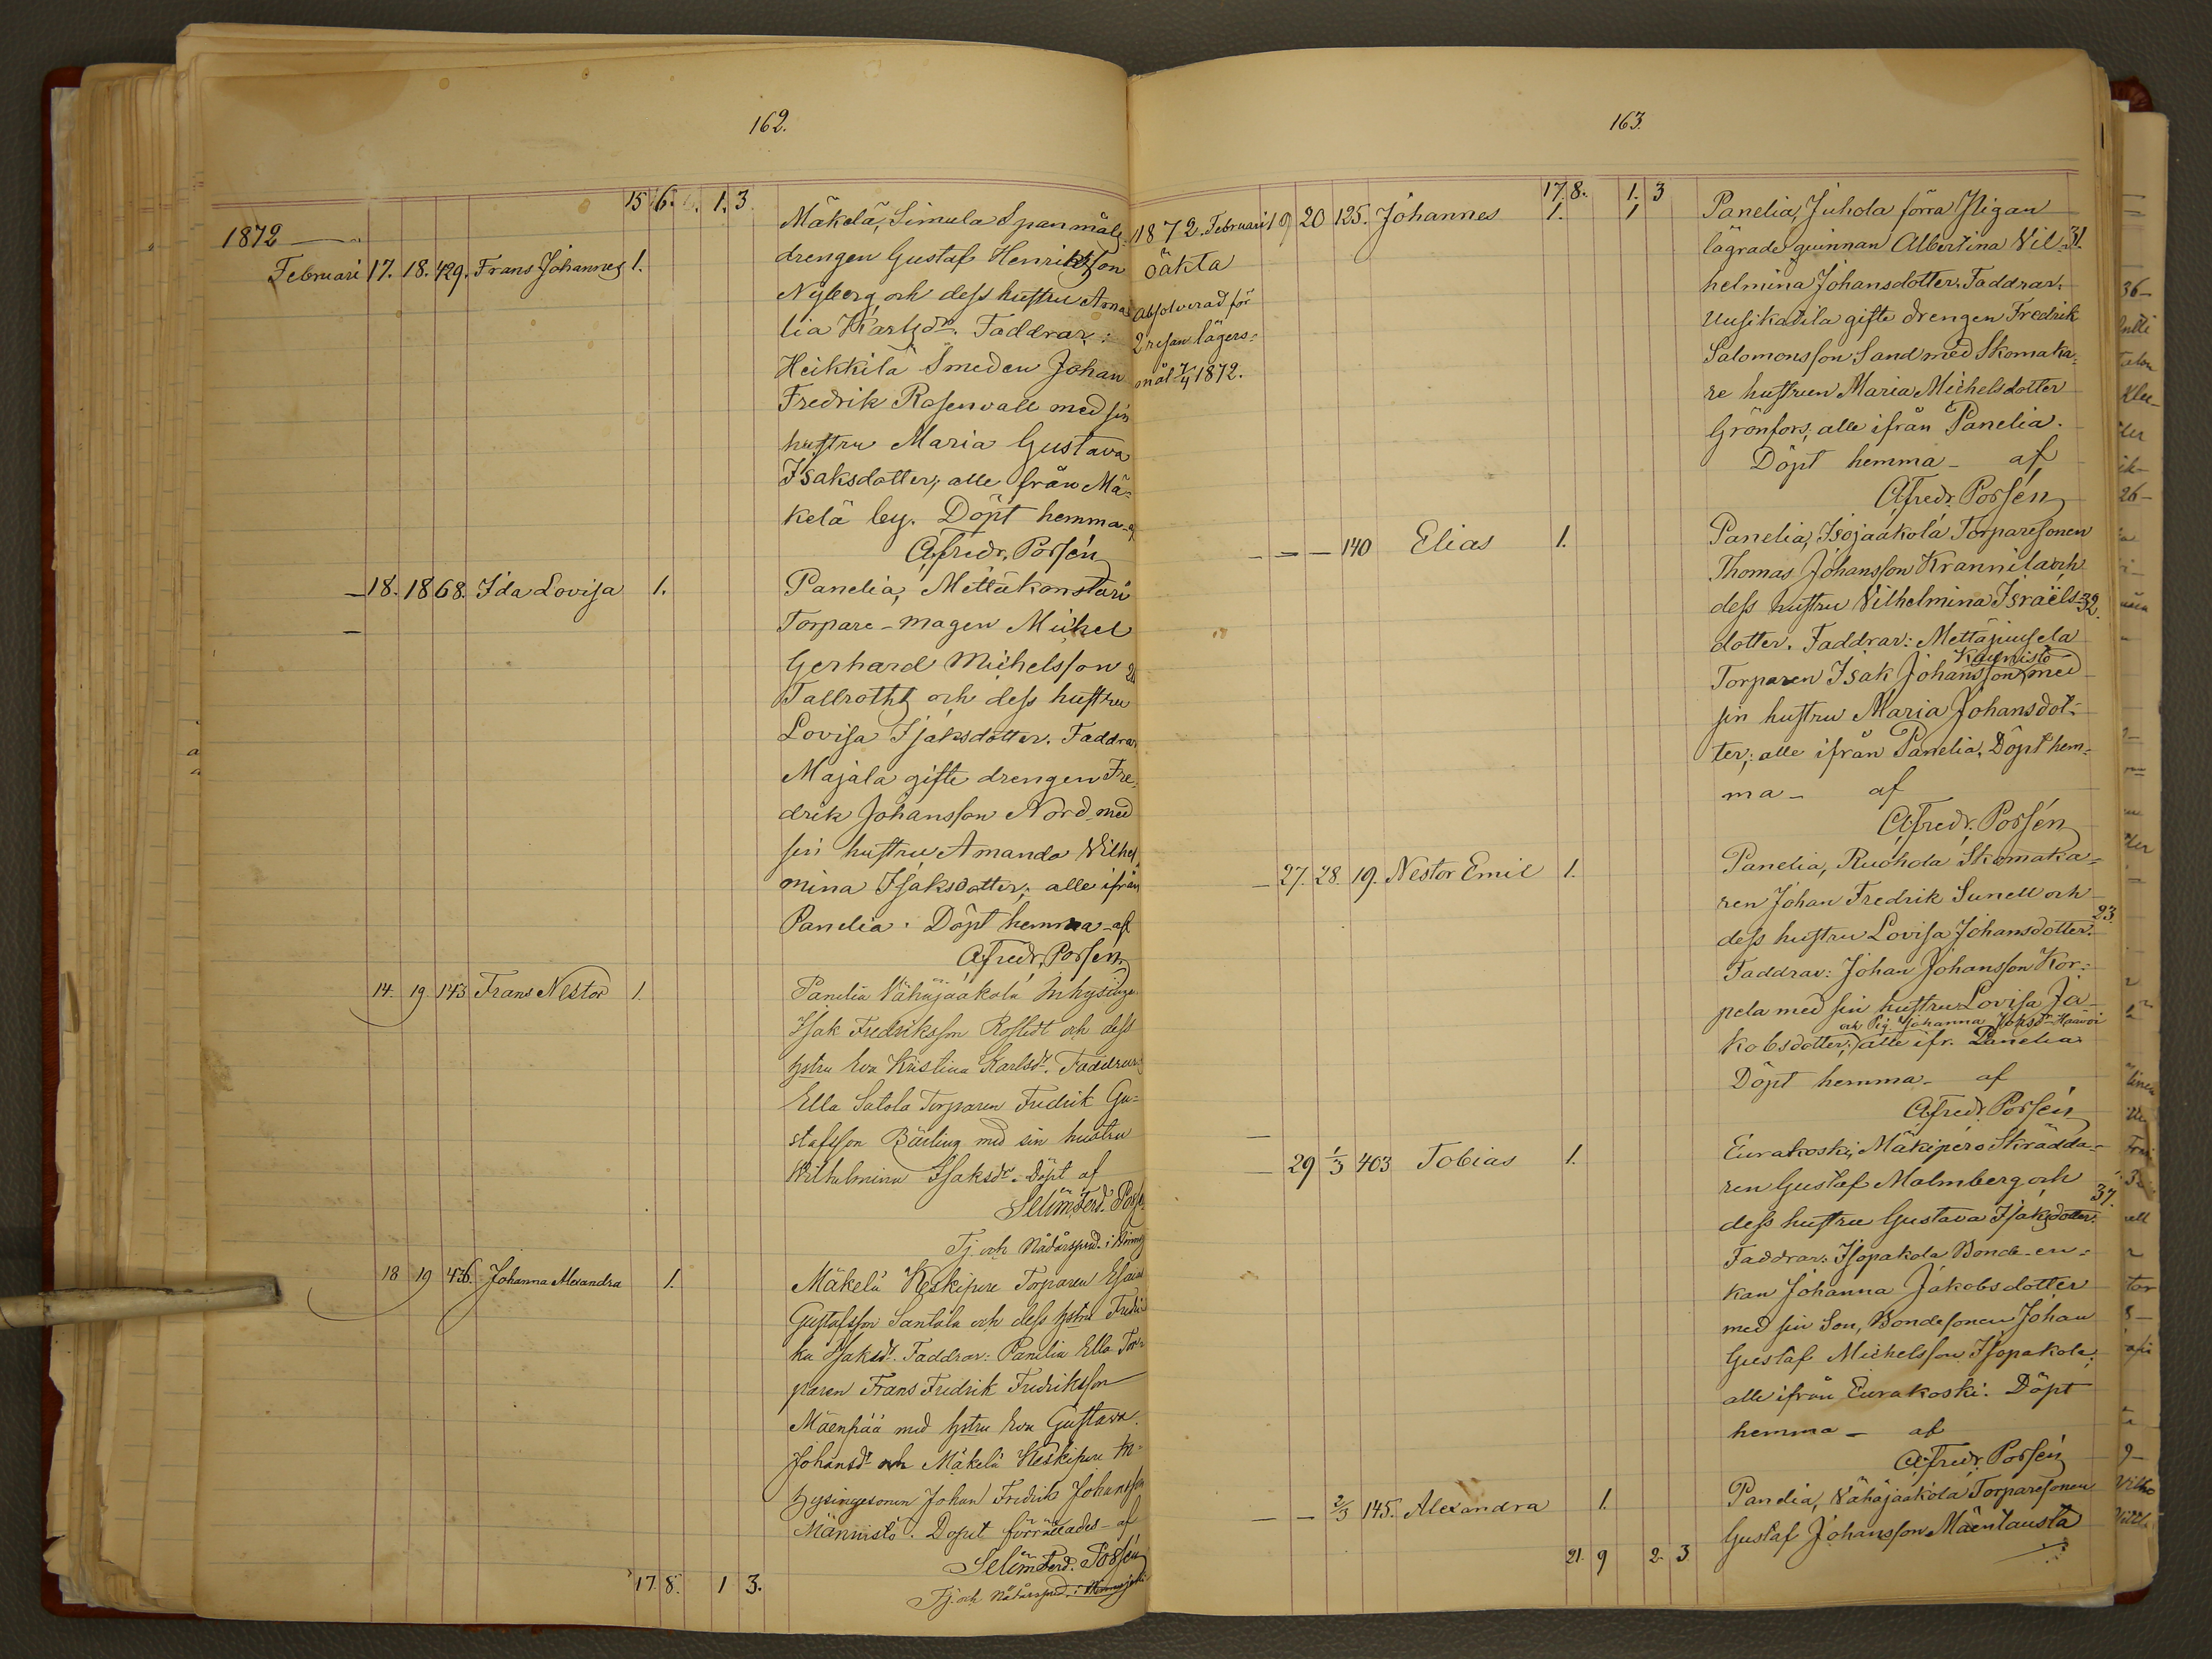 162.
15 6. 1. 3
1872
Februari 17. 18. 429. Frans Johannes 1.
Mäkelä, Simula Spanmåls-
drengen Gustaf Henriksson
Nyberg och dess hustru Ama-
lia Karlsdr. Faddrar:
Heikkilä Smeden Johan
Fredrik Rosenvall med sin
hustru Maria Gustava
Isaksdotter; alle från Mä-
kelä by. Döpt hemma af
Afredr. Porsén
18. 18 68. Ida Lovisa 1.
Panelia, Mettäkonstari
Torpare-magen Mickel
Gerhard Michelsson
Tallroth och dess hustru
Lovisa Isaksdotter. Faddrar
Majala gifte drengen Fre-
drik Johansson Nord med
sin hustru Amanda Wilhel-
mina Isaksdotter; alle ifrån
Panelia. Döpt hemma af
Afredr. Porsén
14. 19. 143 Frans Nestor 1.
Panelia Vähäjaakola Inhysinge
Isak Fredriksson Roslidt och dess
hstru Eva Kristina Karlsdr. Faddrar:
Ella Satola Torparen Fredrik Gu-
stafsson Bärling med sin hustru
Wilhelmina Isaksdr. Döpt af
Selim Ferd. Porsén
Tj. och Nådårspred. i
18 19 436. Johanna Alexandra 1.
Mäkelä Keskipere Torparen Esaias
Gustafsson Santala och dess hstru Fredri-
ka Isaksdr. Faddrar: Panelia Ella Tor-
paren Frans Fredrik Fredriksson
Mäenpää med hstru Eva Gustava
Johansdr och Mäkelä Keskipere In-
hysingesonen Johan Fredrik Johansson
Männistö. Dopet förrättades af
Selim Ferd. Porsén
Tj. och Nådårspred. i
17. 8. 1 3.
163.
17. 8. 1. 3
1872. Februari 19 20 125. Johannes 1. 1
oäkta
Absolverad för
2 resan lägers-
mål 7/4 1872.
Panelia, Juhola förra Pigan
lägrade qvinnan Albertina Vil- 31.
helmina Johansdotter. Faddrar:
Uusikatila gifte drengen Fredrik
Salomonsson Sand med Skomaka-
re hustrun Maria Michelsdotter
Grönfors; alle ifrån Panelia.
Döpt hemma - af
Afredr. Porsén
— — 140 Elias 1.
Panelia, Isojaakola Torparesonen
Thomas Johansson Krannila och
dess hustru Vilhelmina Israëls- 32.
dotter. Faddrar: Mettäjuusela
Kaunisto
Torparen Isak Johansson med
sin hustru Maria Johansdot-
ter; alle ifrån Panelia. Döpt hem-
ma - af
Afredr. Porsén
— 27. 28. 19. Nestor Emil 1.
Panelia, Ruohola Skomaka-
ren Johan Fredrik Sunell och
23.
dess hustru Lovisa Johansdotter.
Faddrar: Johan Johansson Kor-
pela med sin hustru Lovisa Ja-
och Pig. Johanna Jaksdr Haavoi
kobsdotter; alle ifr. Panelia
Döpt hemma - af
Afredr. Porsén
— 29 1/3 403 Tobias 1.
Eurakoski, Mäkiperö Skrädda-
ren Gustaf Malmberg och
37.
dess hustru Gustava Isaksdotter.
Faddrar: Isopakola Bonde-en-
kan Johanna Jakobsdotter
med sin Son, Bondesonen Johan
Gustaf Michelsson Isopakola;
alle ifrån Eurakoski. Döpt
hemma - af
Afredr. Porsén
— — 2/3 145. Alexandra 1.
Panelia, Vähäjaakola Torparesonen
Gustaf Johansson Mäentausta
21. 9 2 3